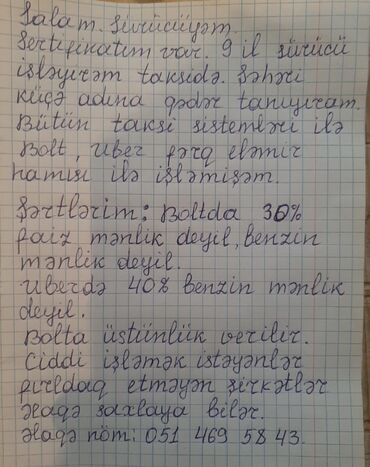 Salam. Sürücüyəm.
Sertifikatım var. 9 il sürücü
işləyirəm taksidə. Şəhəri
küçə adına qədər tanıyıram.
Bütün taksi sistemləri ilə
Bolt, Uber fərq eləmir
hamısı ilə işləmişəm.
Şərtlərim: Boltda 30%
faiz mənlik deyil, benzin
mənlik deyil.
Uberdə 40% benzin mənlik
deyil.
Bolta üstünlük verilir.
Ciddi işləmək istəyənlər
fırıldaq etməyən şirkətlər
əlaqə saxlaya bilər.
Əlaqə nöm: 051 469 58 43.